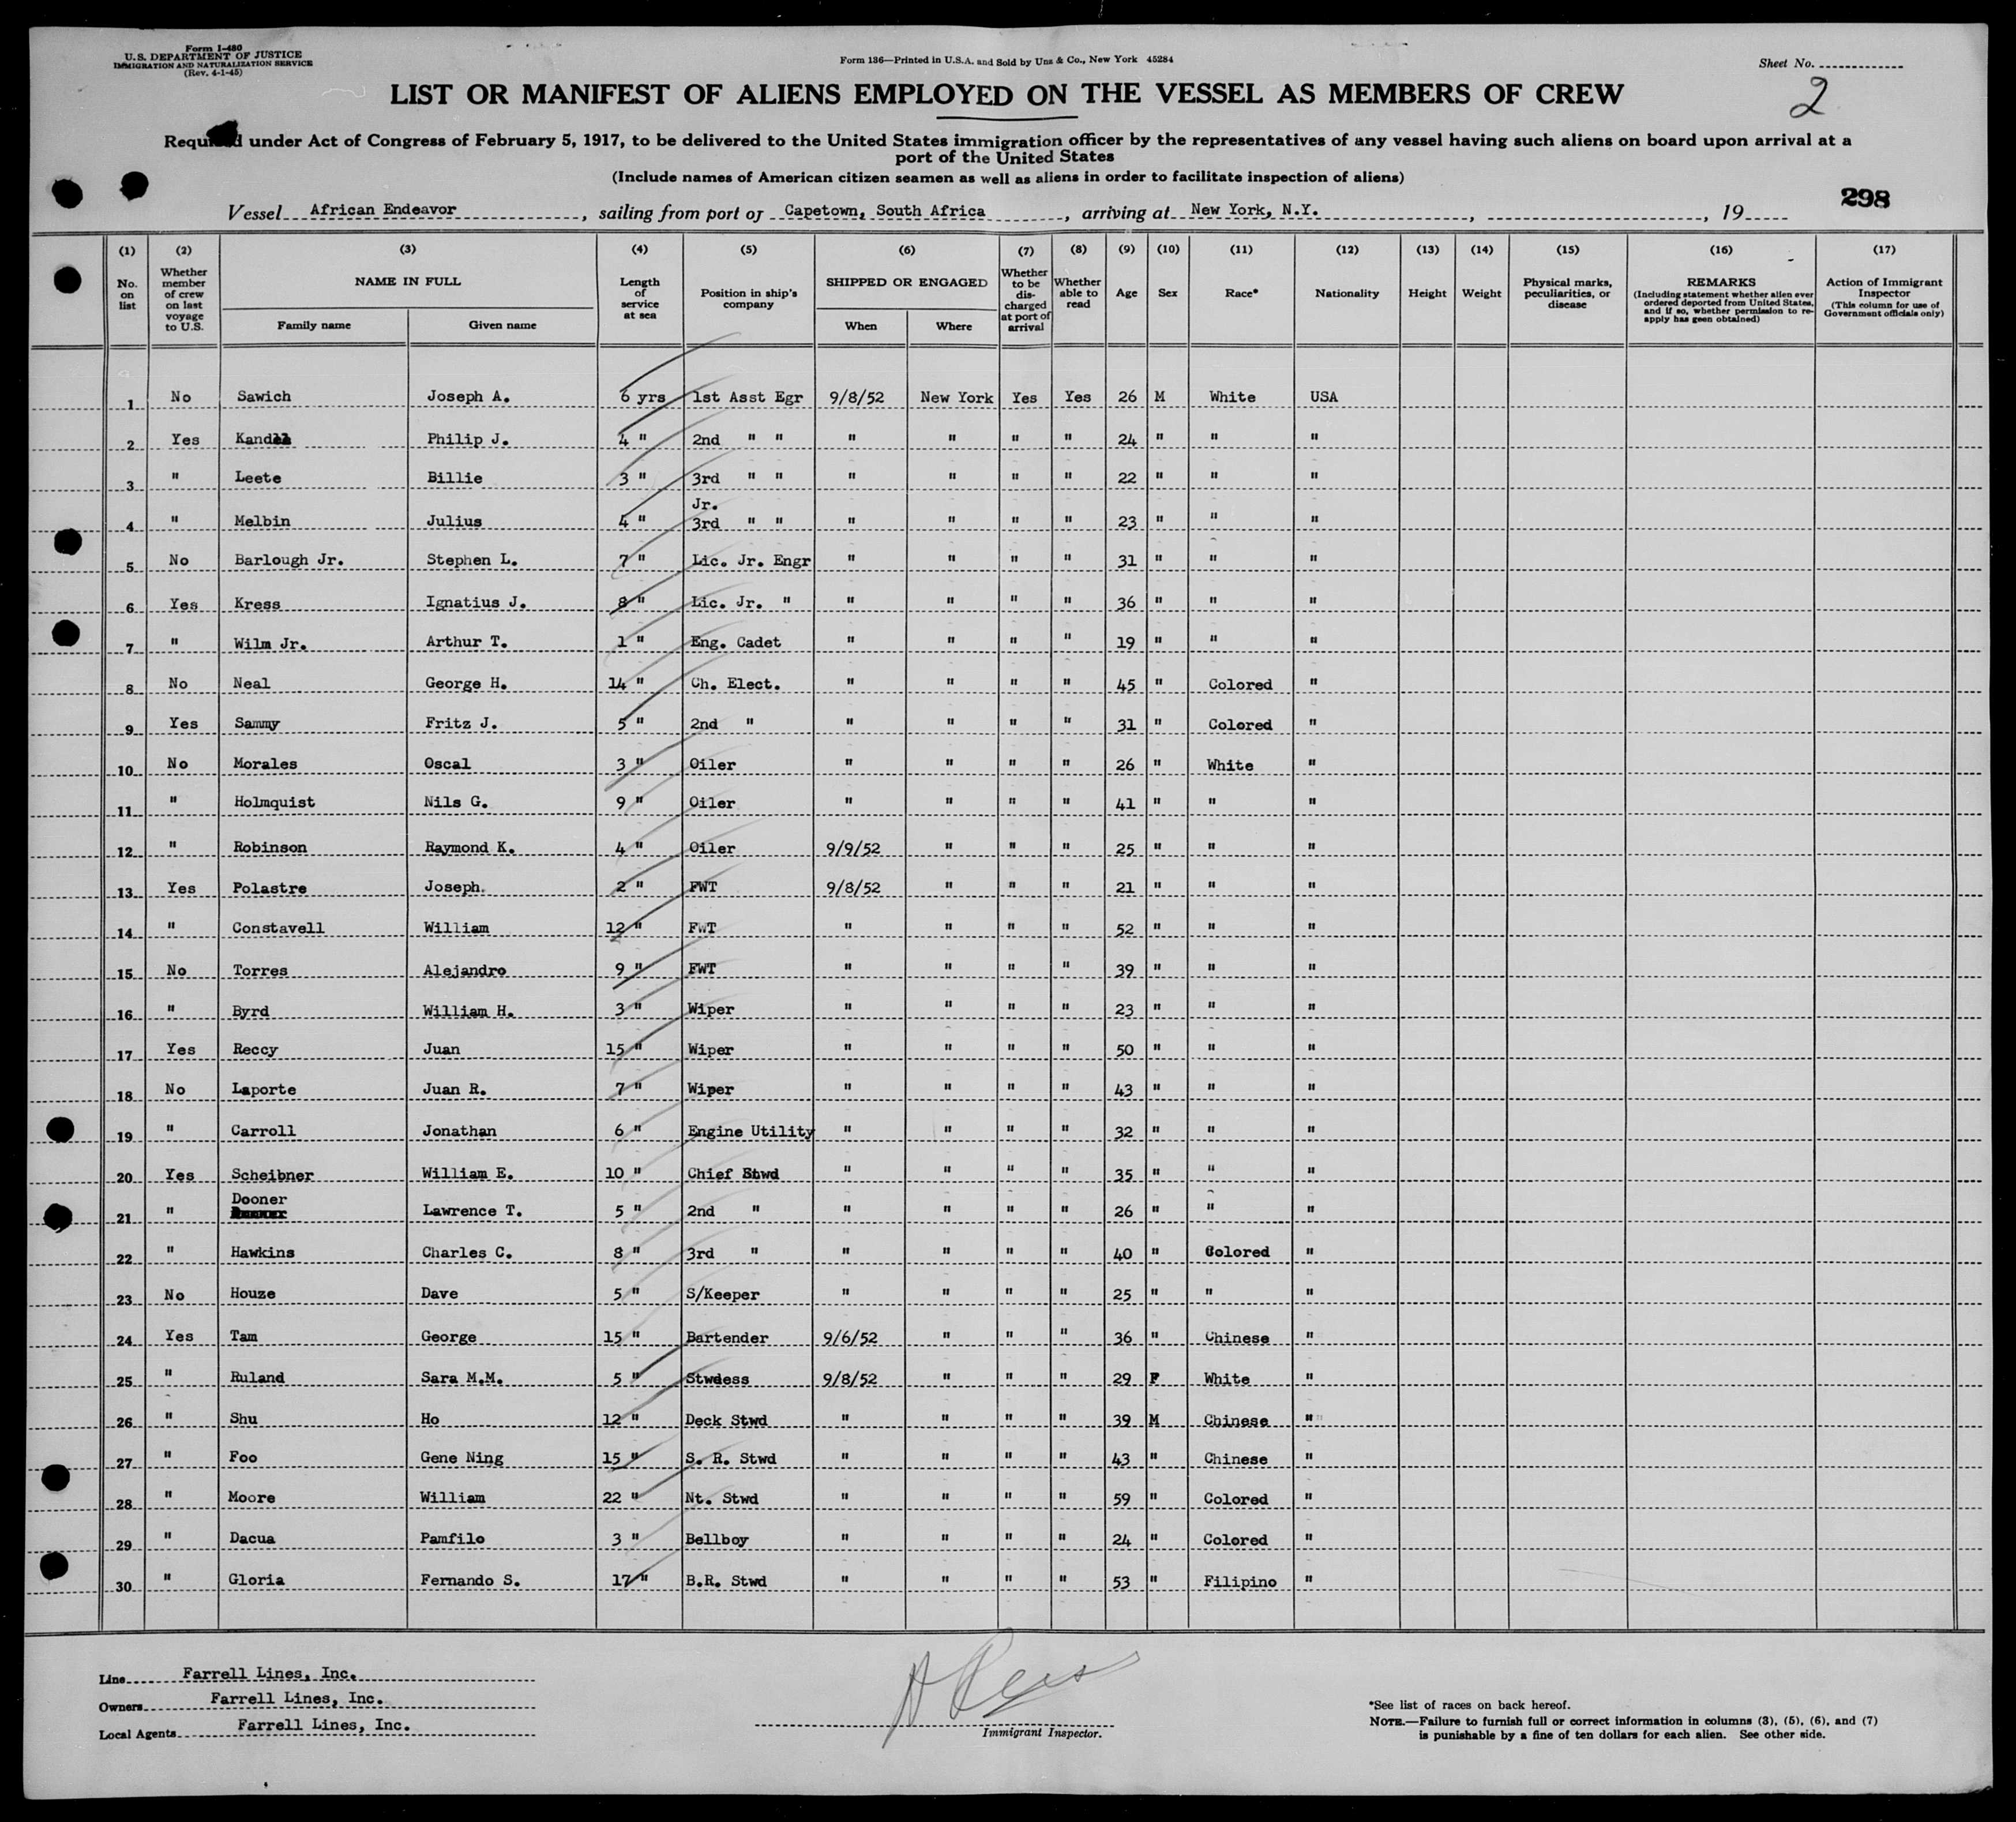 Form I-480
U.S. DEPARTMENT OF JUSTICE
IMMIGRATION AND NATURALIZATION SERVICE
(Rev. 4-1-45)
Form 136—Printed in U.S.A. and Sold by Unz & Co., New York 45284
Sheet No.
2
LIST OR MANIFEST OF ALIENS EMPLOYED ON THE VESSEL AS MEMBERS OF CREW
Required under Act of Congress of February 5, 1917, to be delivered to the United States immigration officer by the representatives of any vessel having such aliens on board upon arrival at a
port of the United States
(Include names of American citizen seamen as well as aliens in order to facilitate inspection of aliens)
298
Vessel African Endeavor, sailing from port of Capetown, South Africa, arriving at New York, N.Y., , 19
(1) (2) (3) (4) (5) (6) (7) (8) (9) (10) (11) (12) (13) (14) (15) (16) (17)
No. on list
Whether member of crew on last voyage to U.S.
NAME IN FULL
Family name
Given name
Length of service at sea
Position in ship's company
SHIPPED OR ENGAGED
When
Where
Whether to be discharged at port of arrival
Whether able to read
Age
Sex
Race*
Nationality
Height
Weight
Physical marks, peculiarities, or disease
REMARKS
(Including statement whether alien ever ordered deported from United States, and if so, whether permission to re-apply has geen obtained)
Action of Immigrant Inspector
(This column for use of Government officials only)
1 No Sawich Joseph A. 6 yrs 1st Asst Egr 9/8/52 New York Yes Yes 26 M White USA
2 Yes Philip J. 4 " 2nd " " " " " " 24 " " "
3 " Leete Billie 3 " 3rd " " " " " " 22 " " "
4 " Melbin Julius 4 " Jr. 3rd " " " " " " 23 " " "
5 No Barlough Jr. Stephen L. 7 " Lic. Jr. Engr " " " " 31 " " "
6 Yes Kress Ignatius J. 8 " Lic. Jr. " " " " " 36 " " "
7 " Wilm Jr. Arthur T. 1 " Eng. Cadet " " " " 19 " " "
8 No Neal George H. 14 " Ch. Elect. " " " " 45 " Colored "
9 Yes Sammy Fritz J. 5 " 2nd " " " " " 31 " Colored "
10 No Morales Oscal 3 " Oiler " " " " 26 " White "
11 " Holmquist Nils G. 9 " Oiler " " " " 41 " " "
12 " Robinson Raymond K. 4 " Oiler 9/9/52 " " " 25 " " "
13 Yes Polastre Joseph 2 " FWT 9/8/52 " " " 21 " " "
14 " Constavell William 12 " FWT " " " " 52 " " "
15 No Torres Alejandro 9 " FWT " " " " 39 " " "
16 " Byrd William H. 3 " Wiper " " " " 23 " " "
17 Yes Reccy Juan 15 " Wiper " " " " 50 " " "
18 No Laporte Juan R. 7 " Wiper " " " " 43 " " "
19 " Carroll Jonathan 6 " Engine Utility " " " " 32 " " "
20 Yes Scheibner William E. 10 " Chief Stwd " " " " 35 " " "
21 " Dooner Lawrence T. 5 " 2nd " " " " " 26 " " "
22 " Hawkins Charles C. 8 " 3rd " " " " " 40 " Colored "
23 No Houze Dave 5 " S/Keeper " " " " 25 " " "
24 Yes Tam George 15 " Bartender 9/6/52 " " " 36 " Chinese "
25 " Ruland Sara M.M. 5 " Stwdess 9/8/52 " " " 29 F White "
26 " Shu Ho 12 " Deck Stwd " " " " 39 M Chinese "
27 " Foo Gene Ning 15 " S. R. Stwd " " " " 43 " Chinese "
28 " Moore William 22 " Nt. Stwd " " " " 59 " Colored "
29 " Dacua Pamfilo 3 " Bellboy " " " " 24 " Colored "
30 " Gloria Fernando S. 17 " B.R. Stwd " " " " 53 " Filipino "
Line Farrell Lines, Inc.
Owners Farrell Lines, Inc.
Local Agents Farrell Lines, Inc.
Immigrant Inspector.
*See list of races on back hereof.
NOTE.—Failure to furnish full or correct information in columns (3), (5), (6), and (7)
is punishable by a fine of ten dollars for each alien. See other side.